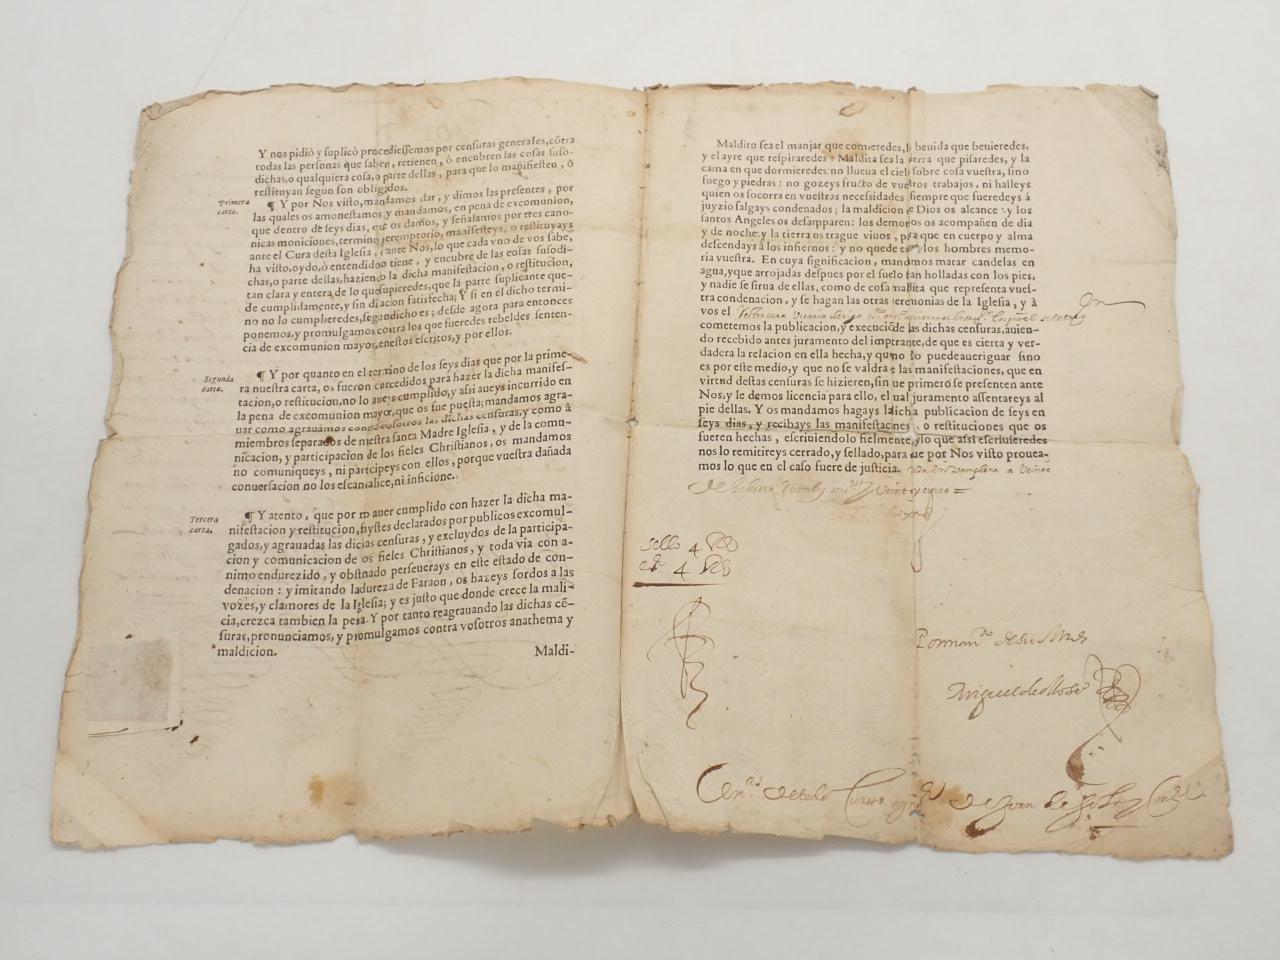 Y nos pidiò y suplicò procediessemos por censuras generales, cõtra
todas las personas que saben, retienen, ò encubren las cosas suso-
dichas, o qualquiera cosa, o parte dellas, para que lo manifiesten, ò
restituyan segun son obligados.
Primera
carta.
¶ Y por Nos visto, mandamos dar, y dimos las presentes, por
las quales os amonestamos, y mandamos, en pena de excomunion,
que dentro de seys dias, que os damos, y señalamos por tres cano-
nicas moniciones, termino peremptorio, manifesteys, o restituyays
ante el Cura desta Iglesia, ante Nos, lo que cada vno de vos sabe,
ha visto, oydo, ò entendido tiene, y encubre de las cosas susodi-
chas, o parte dellas, haziendo la dicha manifestacion, o restitucion,
tan clara y entera de lo que supieredes, que la parte suplicante que-
de cumplidamente, y sin dilacion satisfecha; Y si en el dicho termi-
no no lo cumplieredes, segun dicho es; desde agora para entonces
ponemos, y promulgamos contra los que fueredes rebeldes senten-
cia de excomunion mayor, en estos escritos, y por ellos.
Segunda
carta.
¶ Y por quanto en el termino de los seys dias que por la prime-
ra nuestra carta, os fueron concedidos para hazer la dicha manifes-
tacion, o restitucion, no lo aueys cumplido, y assi aueys incurrido en
la pena de excomunion mayor, que os fue puesta; mandamos agra-
uar como agrauamos contra vosotros las dichas censuras, y como à
miembros separados de nuestra santa Madre Iglesia, y de la comu-
nicacion, y participacion de los fieles Christianos, os mandamos
no comuniqueys, ni participeys con ellos, porque vuestra dañada
conuersacion no los escandalice, ni inficione.
Tercera
carta.
¶ Y atento, que por no auer cumplido con hazer la dicha ma-
nifestacion y restitucion, fuystes declarados por publicos excomul-
gados, y agrauadas las dichas censuras, y excluydos de la participa-
cion y comunicacion de los fieles Christianos, y toda via con a-
nimo endurezido, y obstinado perseuerays en este estado de con-
denacion: y imitando la dureza de Faraon, os hazeys sordos a las
vozes, y clamores de la Iglesia; y es justo que donde crece la mali-
cia, crezca tambien la pena. Y por tanto reagrauando las dichas cẽ-
suras, pronunciamos, y promulgamos contra vosotros anathema y
maldicion.
Maldi-
Maldito sea el manjar que comieredes, la beuida que beuieredes,
y el ayre que respiraredes: Maldita sea la tierra que pisaredes, y la
cama en que dormieredes: no llueua el cielo sobre cosa vuestra, sino
fuego y piedras: no gozeys fructo de vuestros trabajos, ni halleys
quien os socorra en vuestras necessidades: siempre que fueredes à
juyzio salgays condenados; la maldicion de Dios os alcance: y los
santos Angeles os desamparen: los demonios os acompañen de dia
y de noche: y la tierra os trague viuos, para que en cuerpo y alma
descendays à los infiernos: y no quede en los hombres memo-
ria vuestra. En cuya significacion, mandamos matar candelas en
agua, y que arrojadas despues por el suelo sean holladas con los pies,
y nadie se sirua de ellas, como de cosa maldita que representa vues-
tra condenacion, y se hagan las otras ceremonias de la Iglesia, y à
vos el
cometemos la publicacion, y execuciõ de las dichas censuras, auien-
do recebido antes juramento del impetrante, de que es cierta y ver-
dadera la relacion en ella hecha, y que no lo puede aueriguar sino
es por este medio, y que no se valdra de las manifestaciones, que en
virtud destas censuras se hizieren, sin que primero se presenten ante
Nos, y le demos licencia para ello, el qual juramento assentareys al
pie dellas. Y os mandamos hagays la dicha publicacion de seys en
seys dias, y recibays las manifestaciones, o restituciones que os
fueren hechas, escriuiendolo fielmente, y lo que assi escriuieredes
nos lo remitireys cerrado, y sellado, para que por Nos visto prouea-
mos lo que en el caso fuere de justicia. Pamplona a Veinte
de Veinte y cinco =
sello 4 Rs
4 Rs
Por mandº
Miguel de
de Juan de